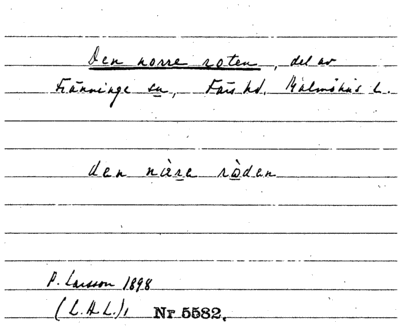 Den norre roten, del av
Fränninge sn, Färs hd, Malmöhus L.
den nä̀re rò̀den
P. Larsson 1898
(L.H.L.),
Nr 5582.